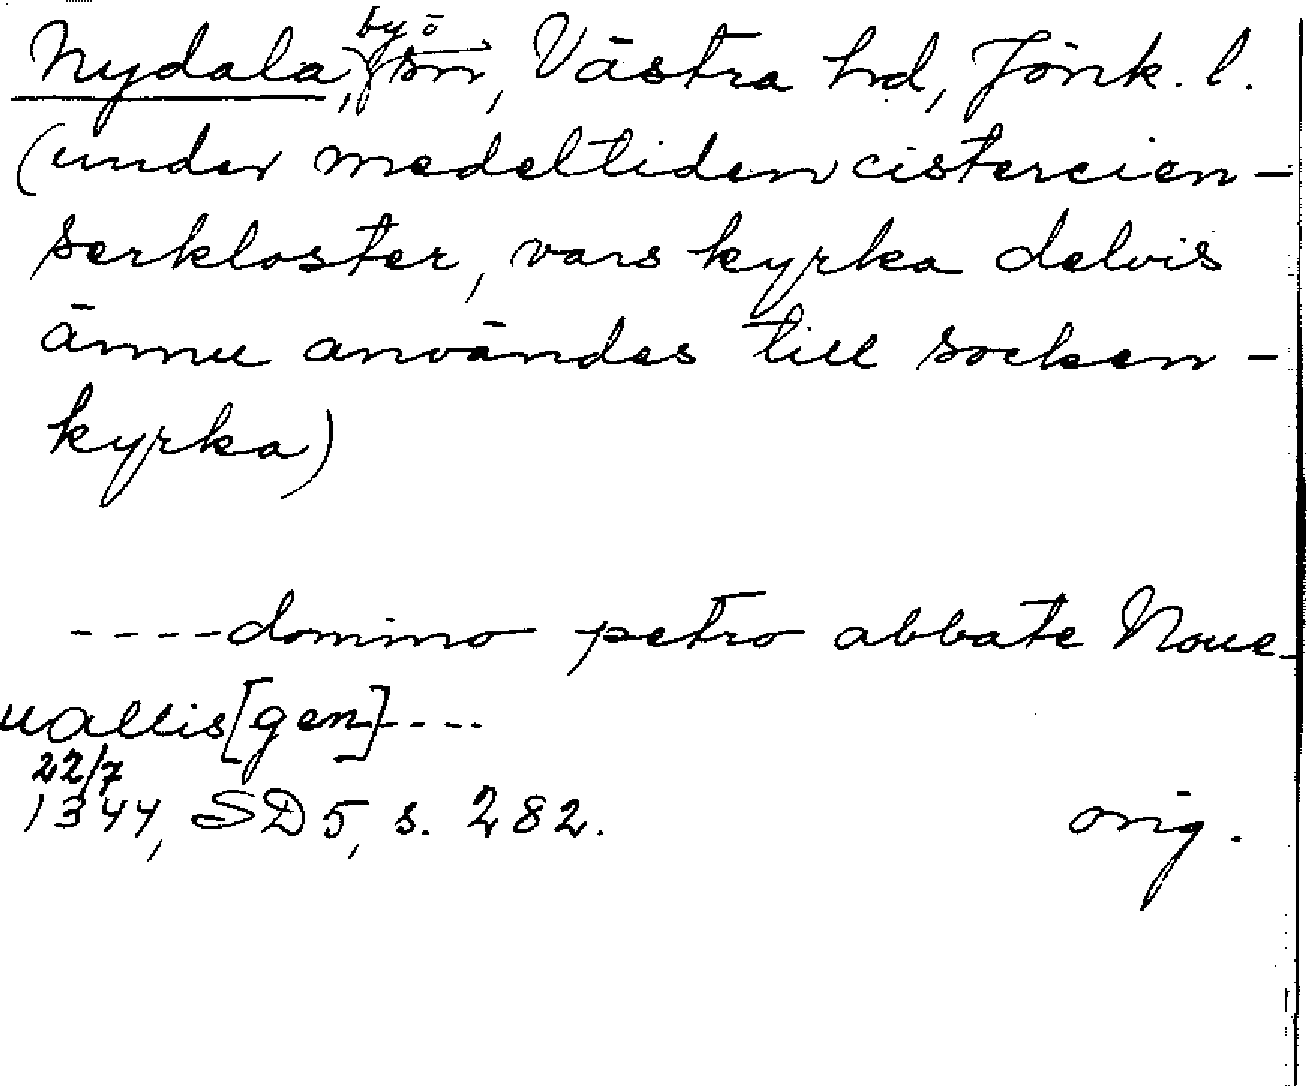 Nydala, by o sn, Västra hd, Jönk. l.
(under medeltiden cistercien-
serkloster, vars kyrka delvis
ännu användes till socken-
kyrka)
----domino petro abbate Noue-
uallis [gen]----
22/7
1344, SD 5, s. 282. orig.